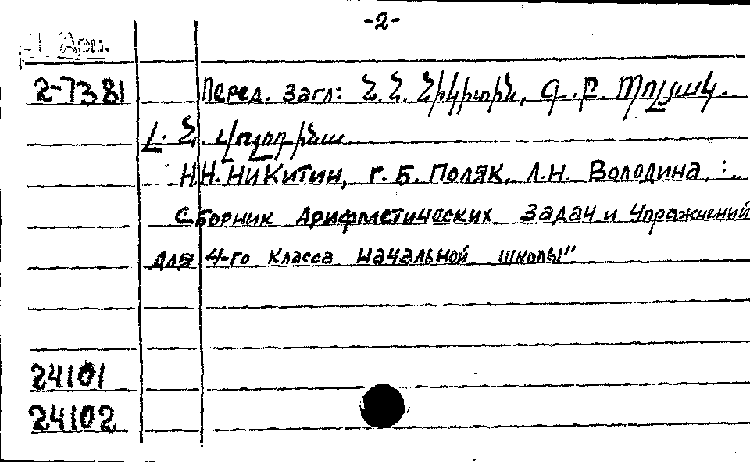 -2-
2-7381 Перед. загл: Ն. Ն. Նիկիտին, Գ. Բ. Պոլյակ.
Լ. Ն. Վոլոդինա
Н.Н. Никитин, Г. Б. Поляк, Л.Н. Володина, :
Сборник Арифметических задач и упражнений
для 4-го класса начальной школы"
24101
24102